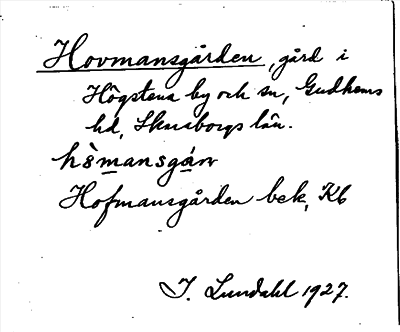 Hovmansgården, gård i
Högstena by och sn, Gudhems
hd, Skaraborgs län.
Hofmansgården bek, Kb
I. Lundahl 1927.